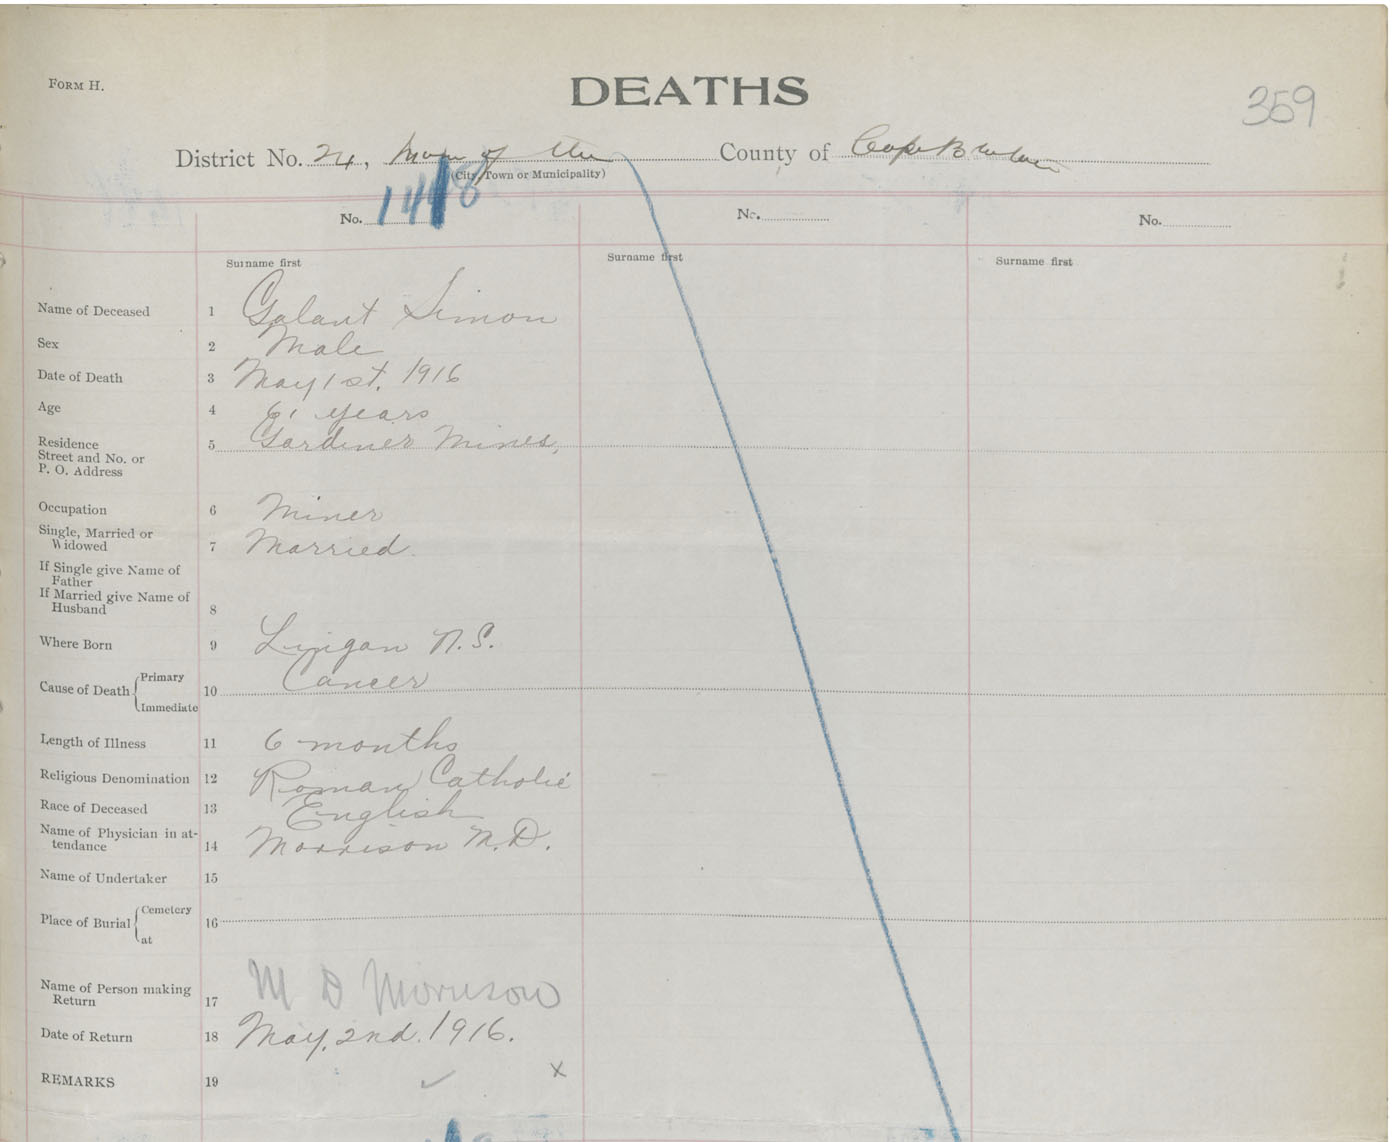 FORM H.
DEATHS
359
District No. 24, of the County of Cape Breton
(City, Town or Municipality)
No. 1418 No. No.
Surname first Surname first Surname first
Name of Deceased 1 Galant Simon
Sex 2 Male
Date of Death 3 May 1st. 1916
Age 4 61 years
Residence Street and No. or P. O. Address 5 Gardiner Mines,
Occupation 6 Miner
Single, Married or Widowed 7 Married.
If Single give Name of Father
If Married give Name of Husband 8
Where Born 9 Lingan N.S.
Cause of Death Primary Immediate 10 Cancer
Length of Illness 11 6 months
Religious Denomination 12 Roman Catholic
Race of Deceased 13 English
Name of Physician in attendance 14 Morrison M.D.
Name of Undertaker 15
Place of Burial Cemetery at 16
Name of Person making Return 17 M D Morrison
Date of Return 18 May. 2nd. 1916.
REMARKS 19 x